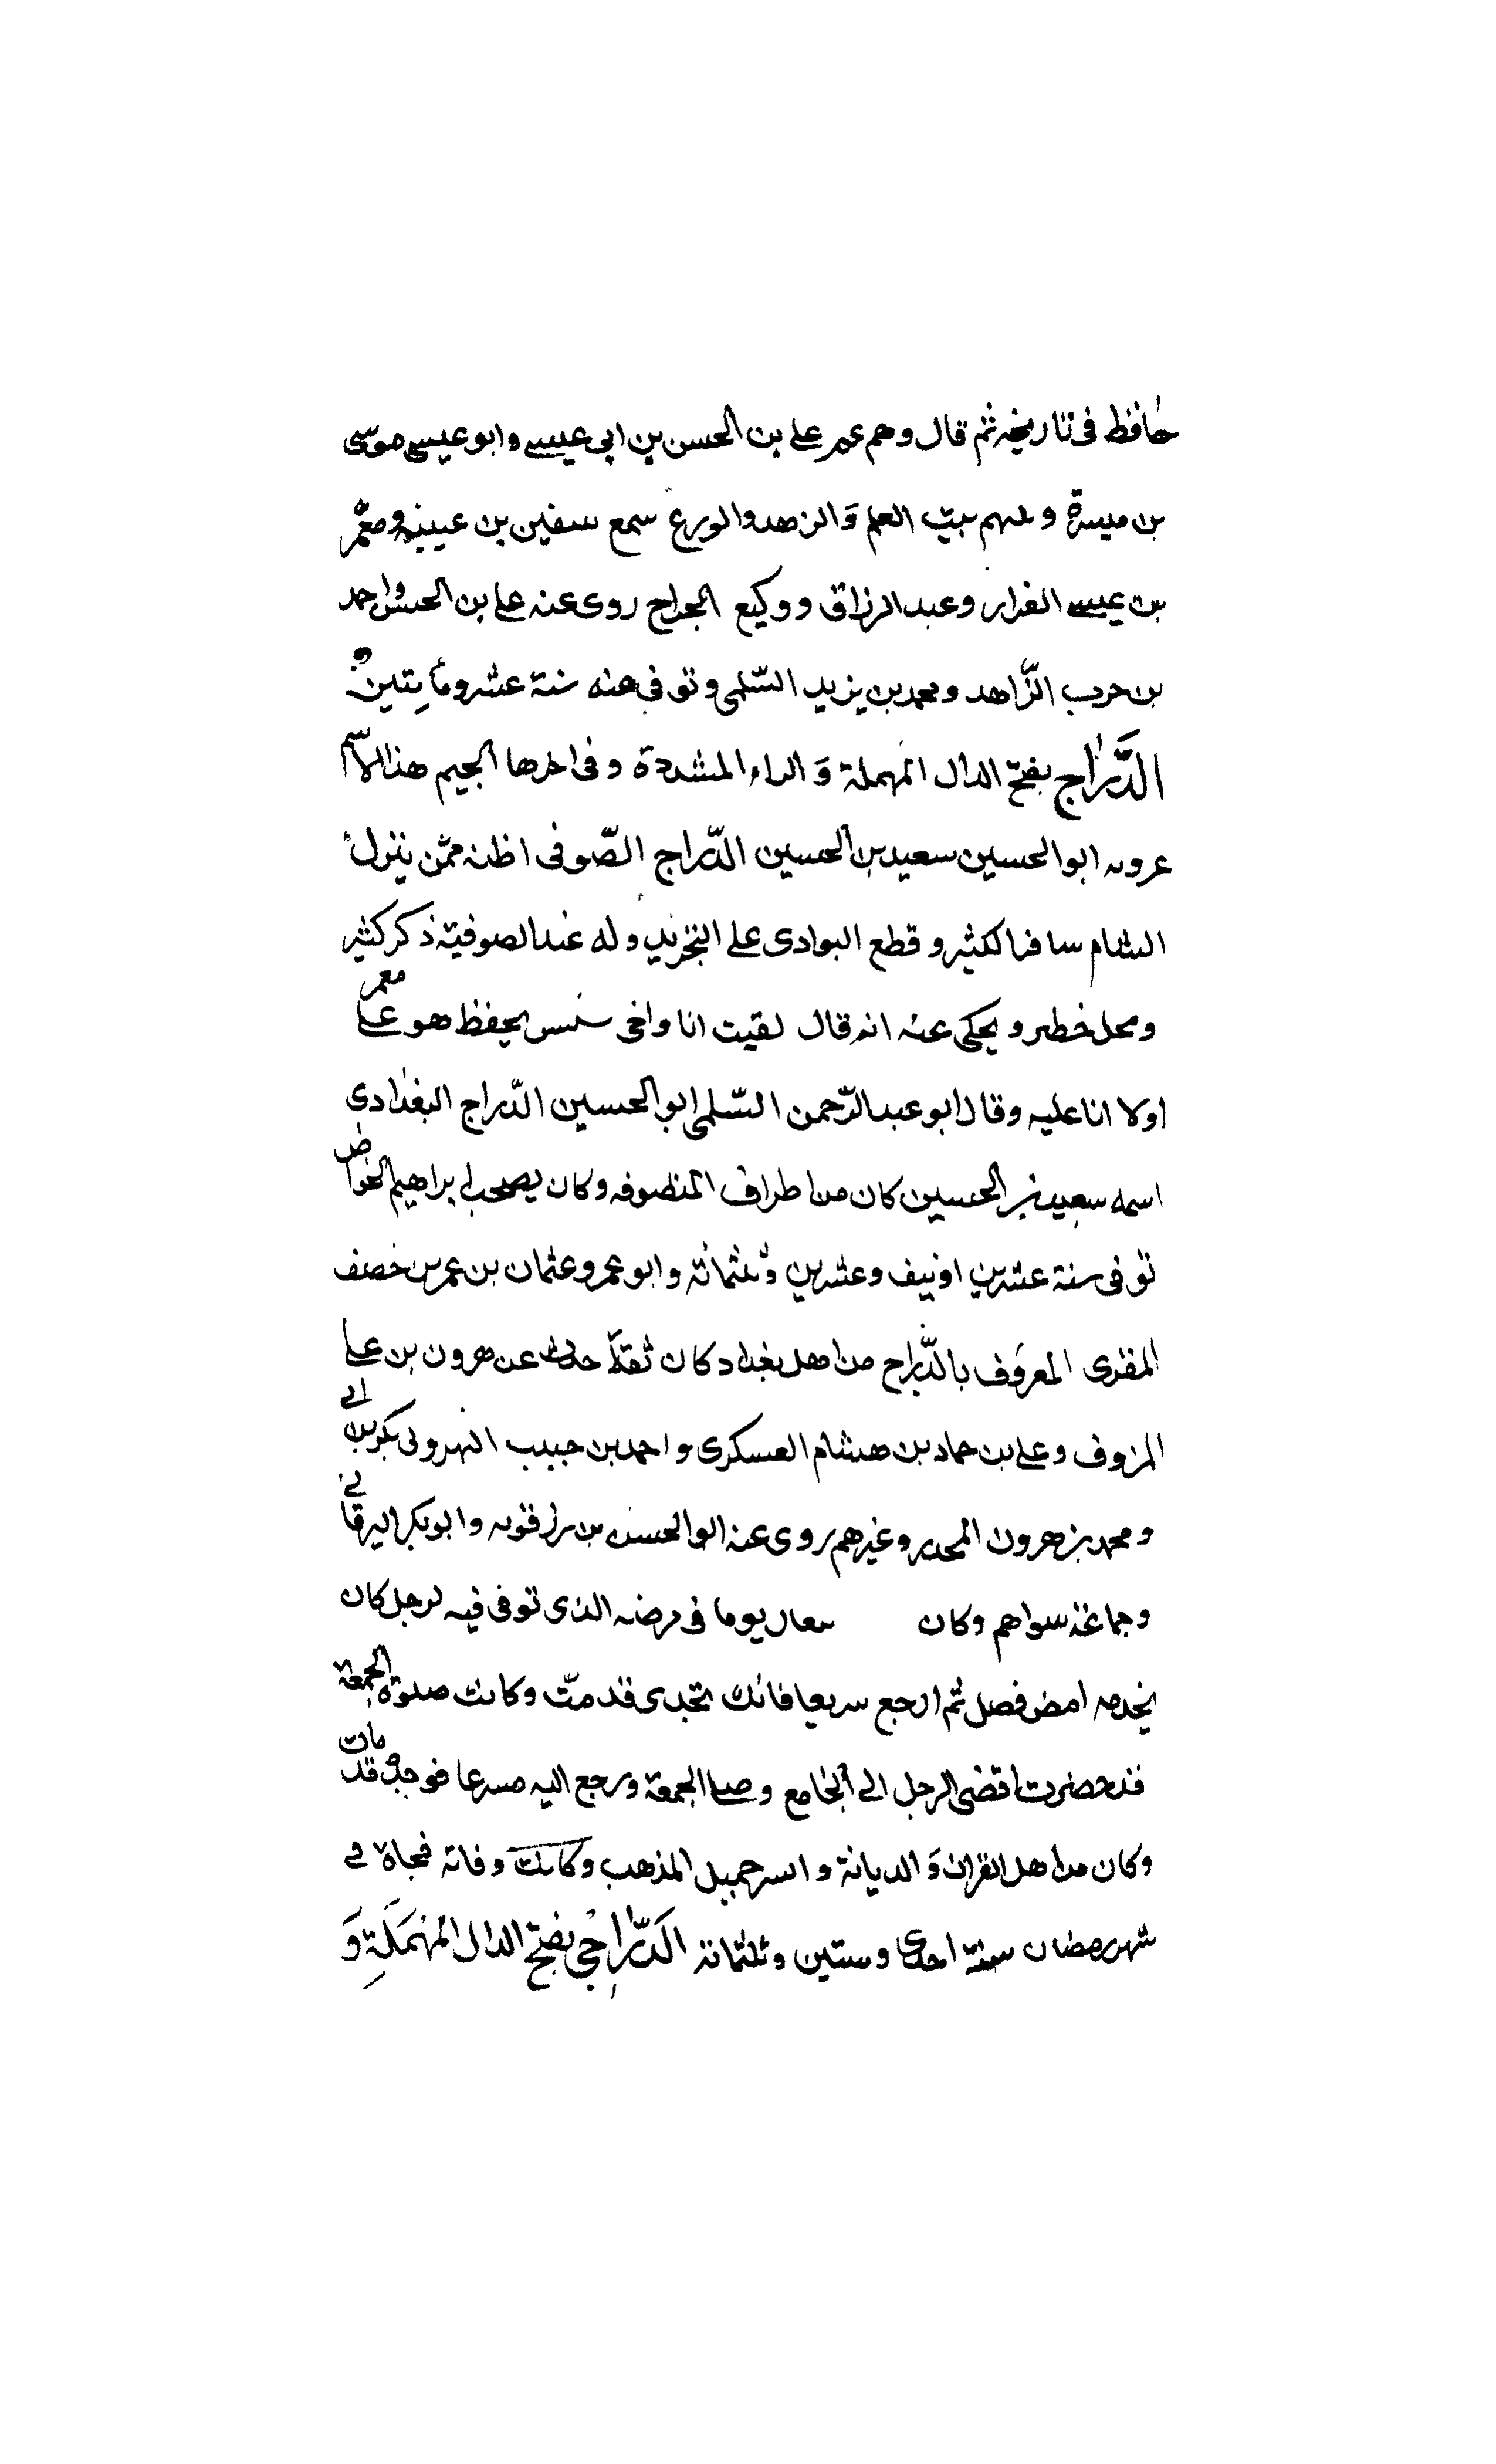 حافظ فى تاريخه ثم قال وهم عم على بن الحسن بن ابى عيسى وابو عيسى موسى
بن ميسرة و بيت العلم وَالزهد والورع سمع سفين بن عيينه ومعمر
بن عيسى القزاز وعبد الرزاق ووكيع الجراح روى عنه على بن الحسن واحمد
بن حرب الزّاهد ومحمد بن يزيد السّلمى وتوفى سنة عشر ومأيتين
الدَّرّاج بفتح الدال المهملة وَ الراء المشددة وفى اخرها الجيم هذا الاسم
ابو الحسين سعيد بن الحسين الدّراج الصّوفى اظنه ممّن ينزل
الشام سافر الكثير وقطع البوادى على التجريد وله عند الصوفية ذكر كثير
ومحل خطير ويحكى عنه انه قال لقيت انا واخى يحفظ هو على معمر
اولا انا عليه وقال ابو عبد الرّحمن السّلمى ابو الحسين الدّراج البغدادى
اسمه سعيد بن الحسين كان من اظراف المتصوفه وكان يصحب ابراهيم الخواص
توفى سنة عشرين او نيف وعشرين وثلثمائة وابو عمرو عثمان بن عمر بن خفيف
المقرى المعروف بالدّراج من اهل بغداد كان ثقة حدث عن هرون بن على
المزوق وعلى بن حماد بن هشام العسكرى واحمد بن حبيب النهروانى بكر بن ابى
ومحمد بن هرون المجدر وغيرهم روى عنه ابو الحسن بن رزقويه وابو بكر البرقانى
وجماعة سواهم وكان يقال يوما فى مرضه الذى توفى فيه لرجل كان
يخدمه امض فصل ثم ارجع سريعا فانك تجدى قد متّ وكانت صلوة الجمعة
قد حضرت فمضى الرجل الى الجامع وصلى الجمعة ورجع اليه مسرعا فوجده قد مات
وكان من اهل القران وَ الديانة و الستر جميل المذهب وكانت وفاته فجاة فى
شهر رمضان سنة احدى وستين وثلثمائة الدَّرّاجى بفتح الدال المُهمَلَةِ وَ